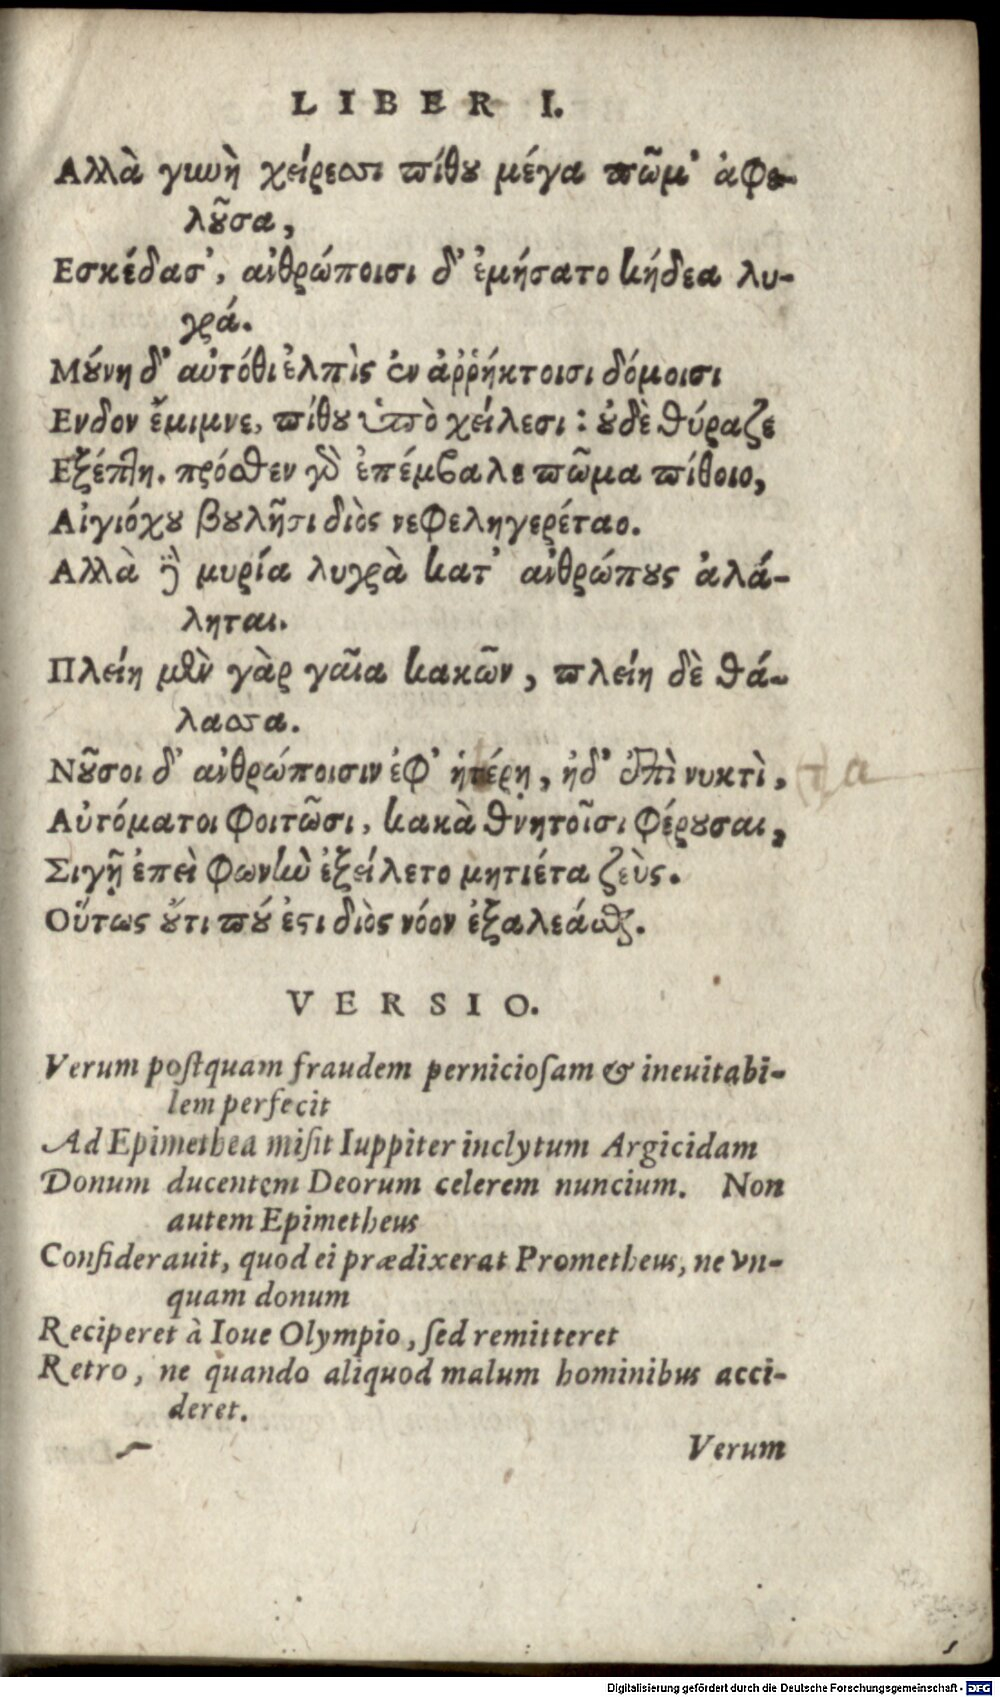 LIBER I.
Αλλὰ γυνὴ χείρεσσι πίθου μέγα πῶμ' ἀφε-
λοῦσα,
Εσκέδασ', ἀνθρώποισι δ' ἐμήσατο κήδεα λυ-
γρά.
Μούνη δ' αὐτόθι ἐλπὶς ἐν ἀῤῥήκτοισι δόμοισι
Ενδον ἔμιμνε, πίθου ὑπὸ χείλεσι: οὐδὲ θύραζε
Εξέπτη. πρόσθεν γδ ἐπέμβαλε πῶμα πίθοιο,
Αἰγιόχου βουλῆσι διὸς νεφεληγερέταο.
Αλλὰ ἢ μυρία λυγρὰ κατ' ἀνθρώπους ἀλά-
ληται.
Πλείη μὲν γὰρ γαῖα κακῶν, πλείη δὲ θά-
λασσα.
Νοῦσοι δ' ἀνθρώποισιν ἐφ' ἡτέρη, ἠδ' ἐπὶ νυκτὶ,
Αὐτόματοι φοιτῶσι, κακὰ θνητοῖσι φέρουσαι,
Σιγῇ ἐπεὶ φωνὴν ἐξείλετο μητιέτα ζεὺς.
Οὕτως οὔτι πού ἐστι διὸς νόον ἐξαλεάσθαι.
VERSIO.
Verum postquam fraudem perniciosam & ineuitabi-
lem perfecit
Ad Epimethea misit Iuppiter inclytum Argicidam
Donum ducentem Deorum celerem nuncium. Non
autem Epimetheus
Considerauit, quod ei prædixerat Prometheus, ne vn-
quam donum
Reciperet à Ioue Olympio, sed remitteret
Retro, ne quando aliquod malum hominibus acci-
deret.
Verum
Digitalisierung gefördert durch die Deutsche Forschungsgemeinschaft - DFG